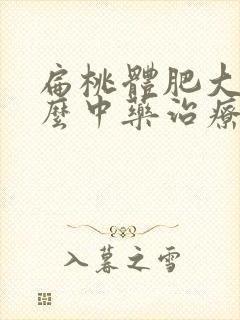 扁桃體肥大
麼中藥治療
入暮之雪